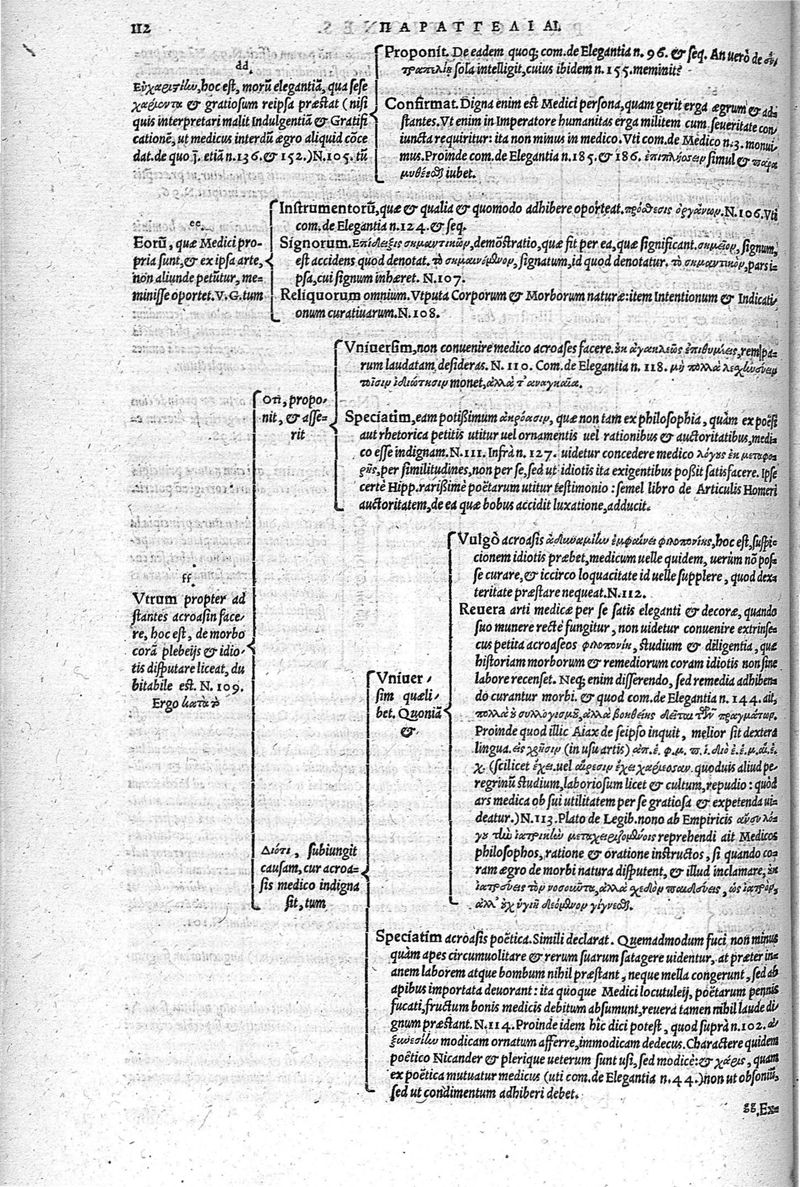 112
ΠΑΡΑΓΓΕΛΙΑΙ.
dd.
Εὐχαριστίαν, hoc est, morũ elegantiã, qua sese
χαρίεντα & gratiosum reipsa præstat (nisi
quis interpretari malit Indulgentiã & Gratifi
cationẽ, ut medicus interdũ ægro aliquid cõce
dat. de quo j. etiã n. 136. & 152.) N. 105. tũ
Proponit. De eadem quoq; com. de Elegantia n. 96. & seq. An uerò de εὐ-
τραπελίῃ sola intelligit, cuius ibidem n. 155. meminit?
Confirmat. Digna enim est Medici persona, quam gerit erga ægrum & ad-
stantes. Vt enim in Imperatore humanitas erga militem cum seueritate con
iuncta requiritur: ita non minus in medico. Vti com. de Medico n. 3. monui
mus. Proinde com. de Elegantia n. 185. & 186. ἐπιπλήσσειν simul & παρα-
μυθέεσθαι iubet.
ee.
Eorũ, quæ Medici pro-
pria sunt, & ex ipsa arte,
non aliunde petũtur, me-
minisse oportet. V. G. tum
Instrumentorũ, quæ & qualia & quomodo adhibere oporteat. πρόθεσις ὀργάνων. N. 106. Vti
com. de Elegantia n. 124. & seq.
Signorum. Επίδειξις σημαντικῶν, demõstratio, quæ fit per ea, quæ significant. σημεῖον, signum,
est accidens quod denotat. τὸ σημαινόμενον, signatum, id quod denotatur. τὸ σημαντικὸν, pars i-
psa, cui signum inhæret. N. 107.
Reliquorum omnium. Vtputa Corporum & Morborum naturæ: item Intentionum & Indicati-
onum curatiuarum. N. 108.
ff.
Vtrum propter ad
stantes acroasin face-
re, hoc est, de morbo
corã plebeijs & idio-
tis disputare liceat, du
bitabile est. N. 109.
Ergo κατὰ τὸ
Οτι, propo-
nit, & asse-
rit
Vniuersim, non conuenire medico acroases facere. ἐκ ἀγακλεῶς ἐπιθυμίεις, rem parum laudatam, desideras. N. 110. Com. de Elegantia n. 118. μὴ πολλὰ λεσχηνεύειν
τοῖσιν ἰδιώτῃσιν monet, ἀλλὰ τ' ἀναγκαῖα.
Speciatim, eam potißimum ἀκρόασιν, quæ non tam ex philosophia, quàm ex poësi
aut rhetorica petitis utitur uel ornamentis uel rationibus & auctoritatibus, medi-
co esse indignam. N. 111. Infrà n. 127. uidetur concedere medico λόγους ἐκ μεταφο-
ρῆς, per similitudines, non per se, sed ut idiotis ita exigentibus poßit satisfacere. Ipse
certè Hipp. rarißimè poëtarum utitur testimonio: semel libro de Articulis Homeri
auctoritatem, de ea quæ bobus accidit luxatione, adducit.
Διότι, subiungit
causam, cur acroa-
sis medico indigna
sit, tum
Vniuer-
sim quæli-
bet. Quoniã
&
Vulgò acroasis ἀδυναμίην ἐμφαίνει φιλοπονίης, hoc est, suspi-
cionem idiotis præbet, medicum uelle quidem, uerùm nõ pos-
se curare, & iccirco loquacitate id uelle supplere, quod dex-
teritate præstare nequeat. N. 112.
Reuera arti medicæ per se satis eleganti & decoræ, quando
suo munere rectè fungitur, non uidetur conuenire extrinse-
cus petita acroaseos φιλοπονίη, studium & diligentia, quæ
historiam morborum & remediorum coram idiotis non sine
labore recenset. Neq; enim disserendo, sed remedia adhiben-
do curantur morbi. & quod com. de Elegantia n. 144. ait,
πολλὰ οὐ συλλογισμοῦ, ἀλλὰ βοηθείης δεῖται τῶν πραγμάτων.
Proinde quod illic Aiax de seipso inquit, melior sit dextera
lingua. εἰς χρῆσιν (in usu artis) ἀπ. ἐ. φ. μ. π. ἰ. διὸ ἐ. ἐ. μ. α. ἐ.
χ. (scilicet ἔχει. uel αἵρεσιν ἔχει χαρίεσσαν. quoduis aliud pe-
regrinũ studium, laboriosum licet & cultum, repudio: quòd
ars medica ob sui utilitatem per se gratiosa & expetenda ui-
deatur.) N. 113. Plato de Legib. nono ab Empiricis ἄνευ λό-
γου τὴν ἰατρικὴν μεταχειριζομένοις reprehendi ait Medicos
philosophos, ratione & oratione instructos, si quando co-
ram ægro de morbi natura disputent, & illud inclamare, οὐκ
ἰατρεύεις τὸν νοσοῦντα, ἀλλὰ σχεδὸν παιδεύεις, ὡς ἰατρὸν,
ἀλλ' οὐχ ὑγιῆ δεόμενον γίγνεσθαι.
Speciatim acroasis poëtica. Simili declarat. Quemadmodum fuci non minus
quàm apes circumuolitare & rerum suarum satagere uidentur, at præter in-
anem laborem atque bombum nihil præstant, neque mella congerunt, sed ab
apibus importata deuorant: ita quoque Medici locutuleij, poëtarum pennis
fucati, fructum bonis medicis debitum absumunt, reuerá tamen nihil laude di-
gnum præstant. N. 114. Proinde idem hîc dici potest, quod suprà n. 102.
modicam ornatum afferre, immodicam dedecus. Charactere quidem
poëtico Nicander & plerique ueterum sunt usi, sed modicè: & χάρις, quam
ex poëtica mutuatur medicus (uti com. de Elegantia n. 44.) non ut obsoniũ,
sed ut condimentum adhiberi debet.
gg. Ex-